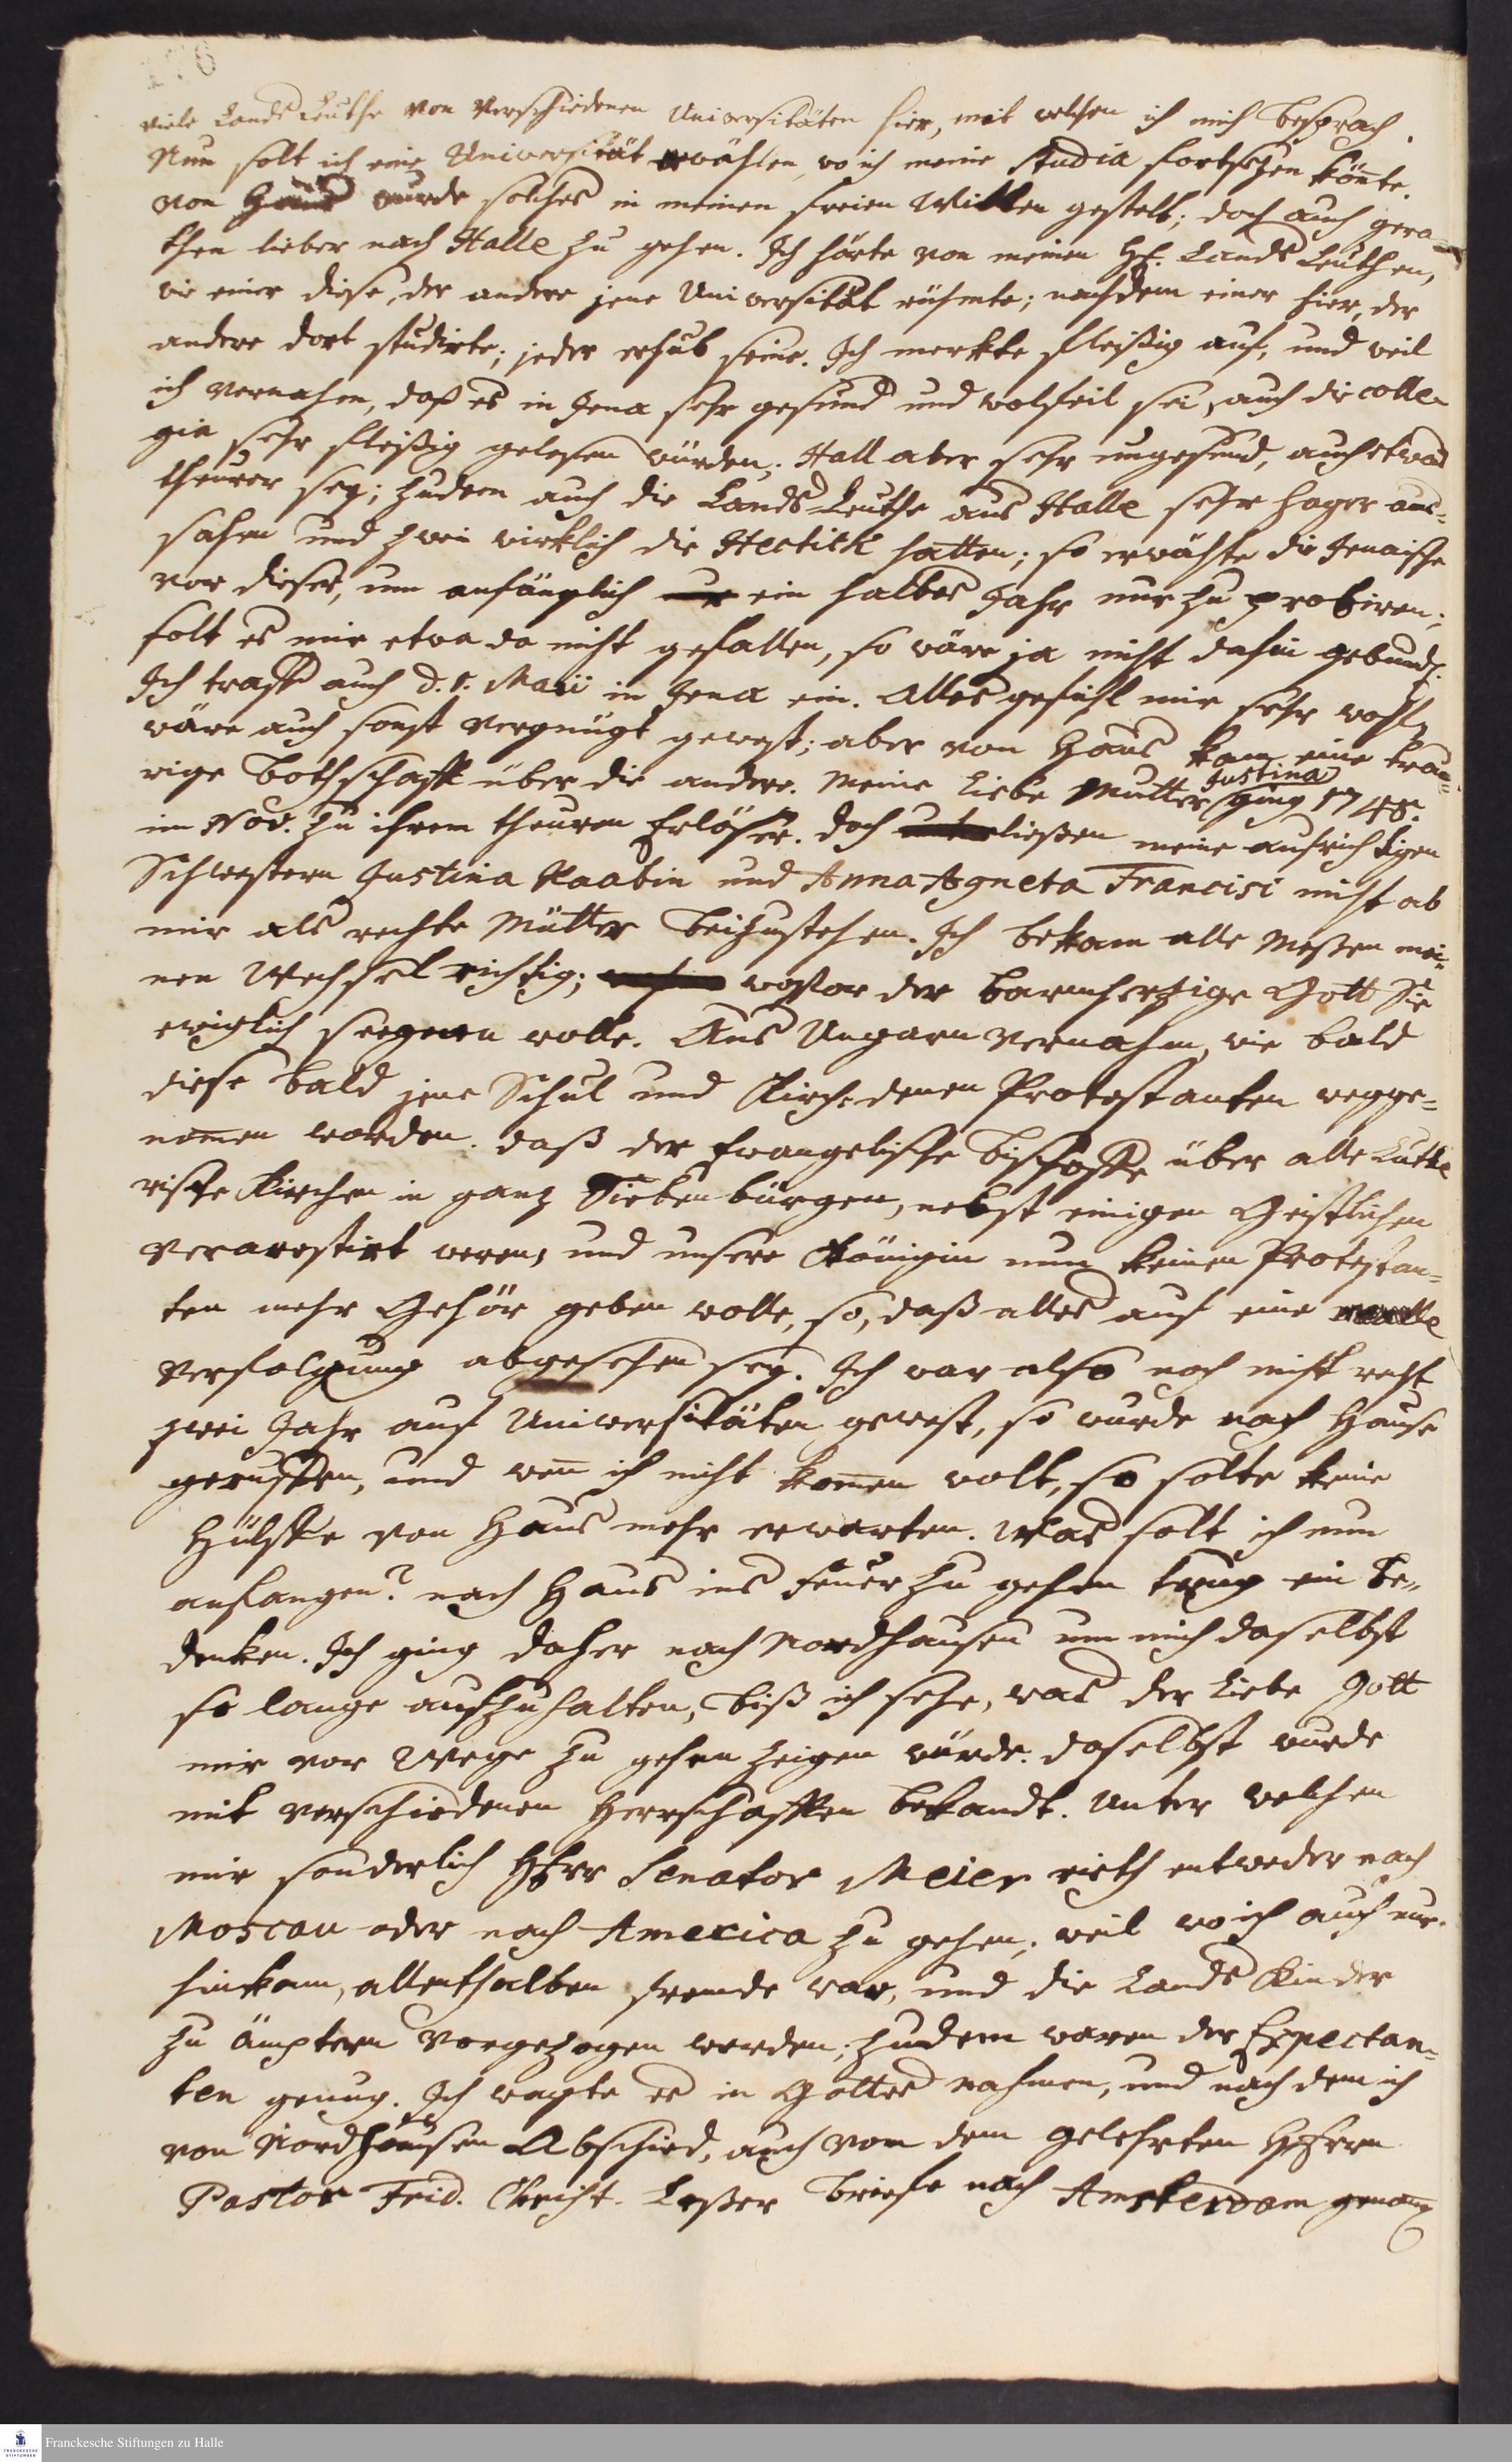 viele Lands Leuthe von verschiedenen Universitäten hier, mit welchen ich mich besprach.
Nun solt ich eine Universität erwählen, wo ich meine Studia fortsetzen kön̄te.
von Haus wurde solches in meinen freien Willen gestelt; doch auch gera-
then lieber nach Halle zu gehen. Ich hörte von meinen HE. Lands Leuthen,
wie einer diese, der andere jene Universität rühmte; nachdem einer hier, der
andere dort studirte; jeder erhub seine. Ich merkte fleißig auf, und weil
ich vernahm, daß es in Jena sehr gesund und wolfeil sei, auch die colle-
gia sehr fleißig gelesen würden; Hall aber sehr ungesund, auch etwas
theurer sey; zudem auch die Lands-Leuthe aus Halle sehr hager aus-
sahen und zwei wirklich die Hectick hatten; so erwählte die Jenaische
vor dieser, um anfänglich ein halbes Jahr nur zu probiren;
solt es mir etwa da nicht gefallen, so wäre ja nicht dahin gebund.
Ich traffe auch d. 1. Maii in Jena ein. Alles gefihl mir sehr wohl,
wäre auch sonst vergnügt gewest; aber von Haus kam eine trau-
rige Bothschafft über die andere. Meine Liebe Mutter Justina ging 1748.
im Nov. zu ihrem theuren Erlöser. Doch ließen meine aufrichtigen
Schwestern Justina Raabin und Anna Agneta Francisi nicht ab
mir als rechte Mütter beizustehen. Ich bekam alle Meßen mei-
nen Wechsel richtig; wovor der barmherzige Gott Sie
ewiglich seegnen wolle. Aus Ungarn vernahm, wie bald
diese bald jene Schul und Kirche denen Protestanten wegge-
nom̄en worden. daß der Evangelische Bischoffe über alle Luthe
rische Kirchen in ganz Siebenbürgen, nebst einigen Geistlichen
verarestirt weren, und unsere Königin nun keinen Protestan-
ten mehr Gehör geben wolle, so, daß alles auf eine
Verfolgung abgesehen sey. Ich war also noch nicht recht
zwei Jahr auf Universitäten gewest, so wurde nach Hause
geruffen, und wen̄ ich nicht kom̄en wolt, so solte keine
Hülffe von Haus mehr erwarten. Was solt ich nun
anfangen? nach Haus ins Feuer zu gehen trug ein Be-
denken. Ich ging daher nach Nordhausen um mich daselbst
so lange aufzuhalten, biß ich sehe, was der Liebe Gott
mir vor Wege zu gehen zeigen würde. daselbst wurde
mit verschiedenen Herrschafften bekandt. Unter welchen
mir sonderlich HErr Senator Meier rieth entweder nach
Moscau oder nach America zu gehen; weil wo ich auch nur
hinkam, allenthalben fremde war, und die Lands Kinder
zu Ämptern vorgezogen werden; zudem waren der Expectan-
ten genug. Ich wagte es in Gottes nahmen, und nach dem ich
von Nordhausen Abschied, auch von dem gelehrten HErrn
Pastor Frid. Christ. Leßer Briefe nach Amsterdam genom̄
Franckesche Stiftungen zu Halle